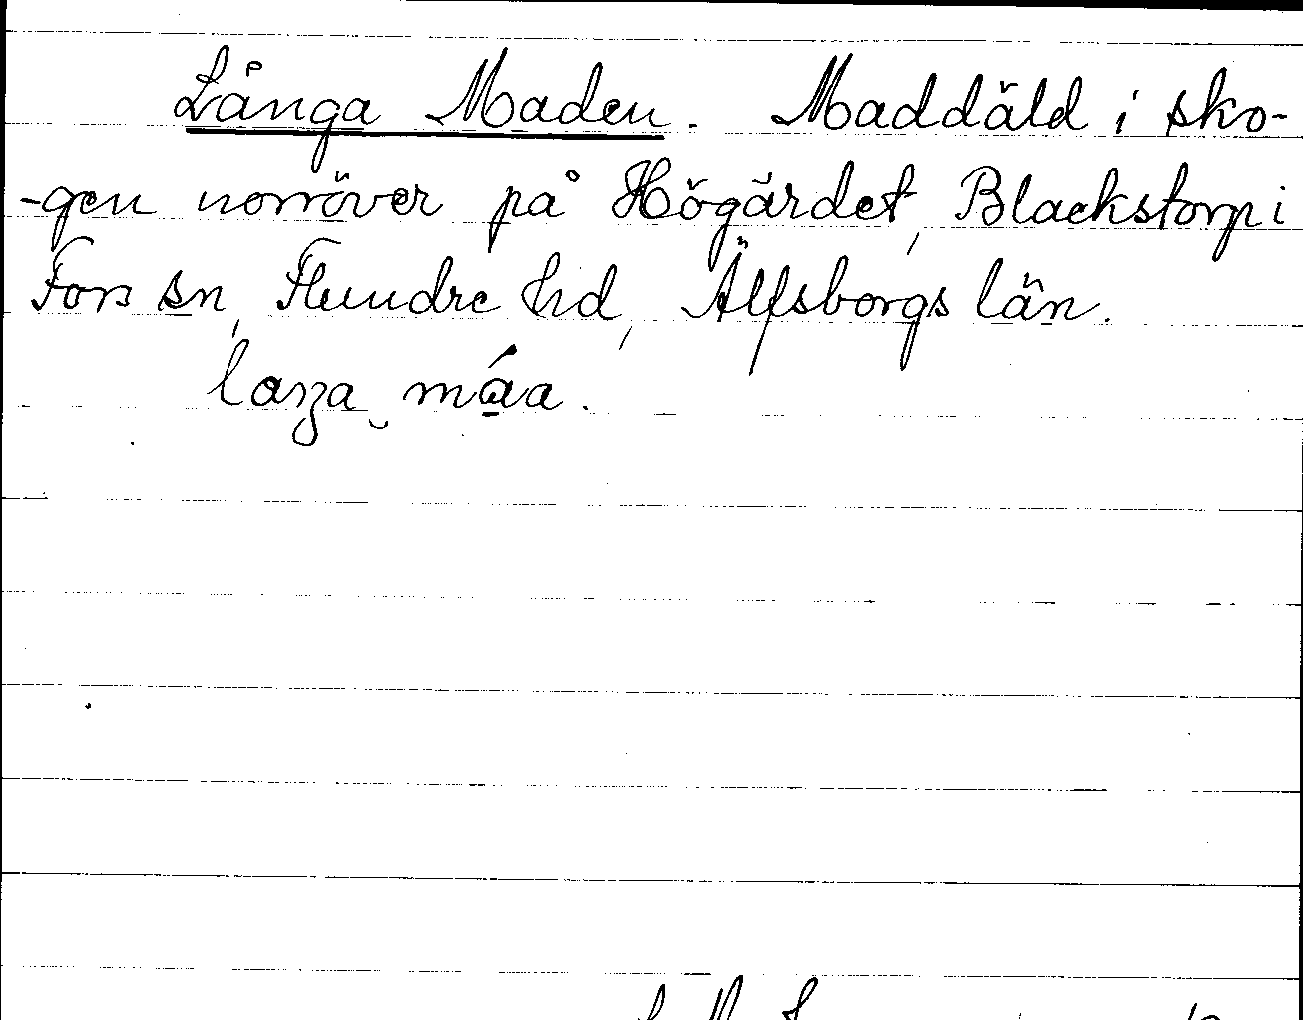 Långa Maden. Maddäld i sko-
-gen norröver på Högärdet, Blackstorp i
Fors sn, Flundre hd, Älfsborgs län.
laŋa máa.